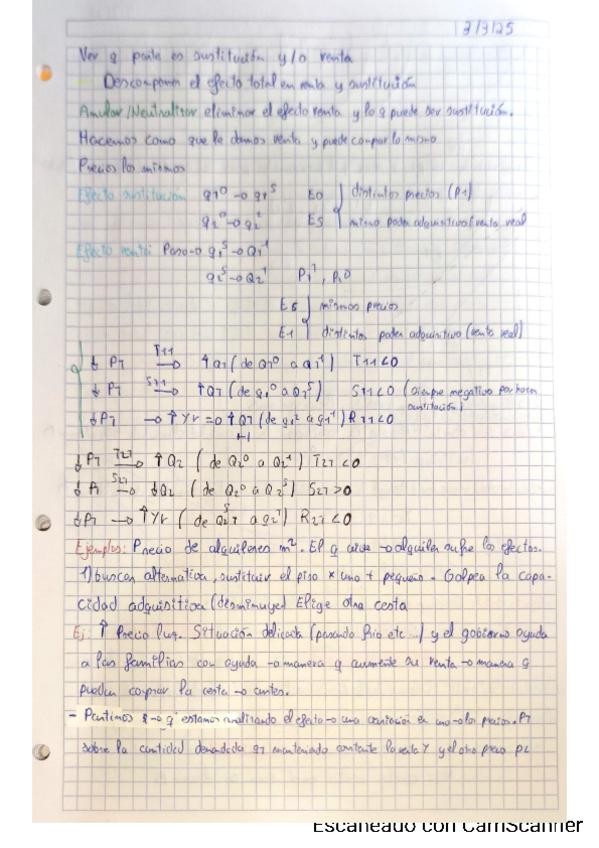 3/3/25
Ver q parte es sustitución y/o renta
Descomponer el efecto total en renta y sustitución
Anular/Neutralizar eliminar el efecto renta y lo q puede ser sustitución.
Hacemos como que le damos renta y puede comprar lo mismo
Precios los mismos
Efecto sustitución q1⁰ → q1ˢ E0 distintos precios (P1)
q2⁰ → q2ˢ Es mismo poder adquisitivo/renta real
Efecto renta: Paso → q1ˢ → Q1¹
q2ˢ → Q2¹ P1¹, P2⁰
Es mismos precios
E1 distintos poder adquisitivo (renta real)
↓ P1 T11→ ↑Q1 (de Q1⁰ a Q1¹) T11<0
↓ P1 S11→ ↑Q1 (de q1⁰ a Q1ˢ) S11<0 (siempre negativo por
sustitución)
↓P1 → ↑Yr ⇒ ↑Q1 (de q1ˢ a q1¹) R11<0
↓P1 T21→ ↑Q2 (de Q2⁰ a Q2¹) T21<0
↓P1 S21→ ↓Q2 (de Q2⁰ a Q2ˢ) S21>0
↓P1 → ↑Yr (de Q2ˢ a q2¹) R21<0
Ejemplos: Precio de alquileres m². El q vive → alquiler sufre los efectos.
1) buscar alternativa, sustituir el piso x uno + pequeño - Golpea la capa-
cidad adquisitiva (disminuye) Elige otra cesta
Ej: ↑ Precio luz. Situación delicada (pasando frío etc...) y el gobierno ayuda
a las familias con ayuda → manera q aumente su renta → manera q
puedan comprar la cesta → antes.
- Partimos → q estamos analizando el efecto → una variación en uno → los precios. P1
sobre la cantidad demandada q1 manteniendo constante la renta Y y el otro precio p2
Escaneado con CamScanner